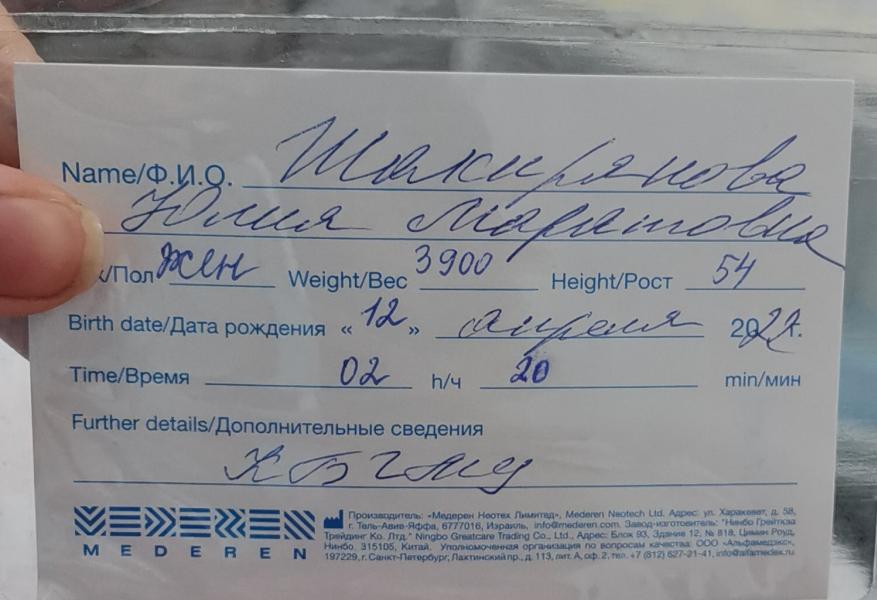 Name/Ф.И.О. Шакирянова
Юлия Маратовна
/Пол жен Weight/Вес 3900 Height/Рост 54
Birth date/Дата рождения «12» апреля 2022г.
Time/Время 02 h/ч 20 min/мин
Further details/Дополнительные сведения
КБГМУ
MEDEREN
Производитель: «Медерен Неотех Лимитед», Mederen Neotech Ltd. Адрес: ул. Харакевет, д. 58,
г. Тель-Авив-Яффа, 6777016, Израиль, info@mederen.com. Завод-изготовитель: "Нинбо Грейткэа
Трейдинг Ко. Лтд." Ningbo Greatcare Trading Co., Ltd., Адрес: Блок 93, Здание 12, № 818, Цимин Роуд,
Нинбо. 315105, Китай. Уполномоченная организация по вопросам качества: ООО «Альфамедэкс»,
197229, г. Санкт-Петербург, Лахтинский пр., д. 113, лит. А, оф. 2, тел. +7 (812) 627-21-41, info@alfamedex.ru